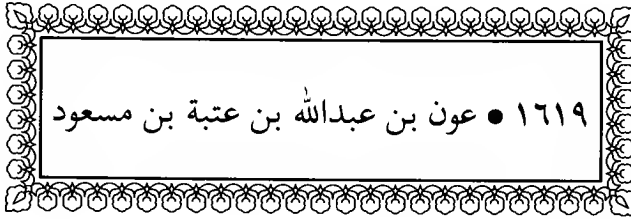 ١٦١٩ • عون بن عبدالله بن عتبة بن مسعود